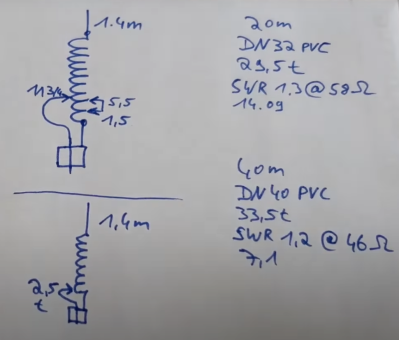 1.4m
11 3/4
5,5
1,5
20m
DN32 PVC
23,5t
SWR 1.3@58Ω
14.09
1,4m
2,5
t
40m
DN40 PVC
33,5t
SWR 1,2 @ 46Ω
7,1